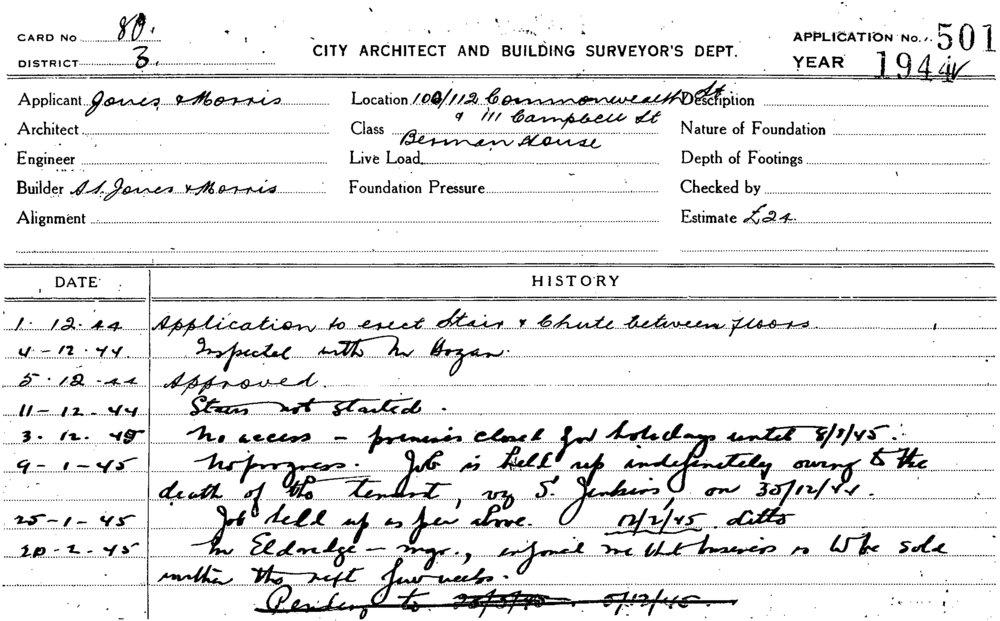 CARD No 80.
DISTRICT 3.
CITY ARCHITECT AND BUILDING SURVEYOR'S DEPT.
APPLICATION No. 501
YEAR 1944
Applicant Jones & Morris
Location 100/112 Commonwealth St
& 111 Campbell St
Description
Architect
Class Berman House
Nature of Foundation
Engineer
Live Load
Depth of Footings
Builder S.S. Jones & Morris
Foundation Pressure
Checked by
Alignment
Estimate £24
DATE HISTORY
1. 12. 44 Application to erect Stair & Chute between floors.
4-12.44. Inspected with Mr Hogan.
5.12.44 Approved.
11-12.44 Stairs not started.
3.12.45 No access - premises closed for holidays until 8/1/45.
9-1-45 No progress. Job is held up indefinitely owing to the
death of the tenant, viz S. Jenkins, on 30/12/44.
25-1-45 Job held up as per above. 12/2/45 ditto
20-2-45 Mr Eldredge - mgr., informed me that business is to be sold
within the next few weeks.
Pending to 5/12/45.